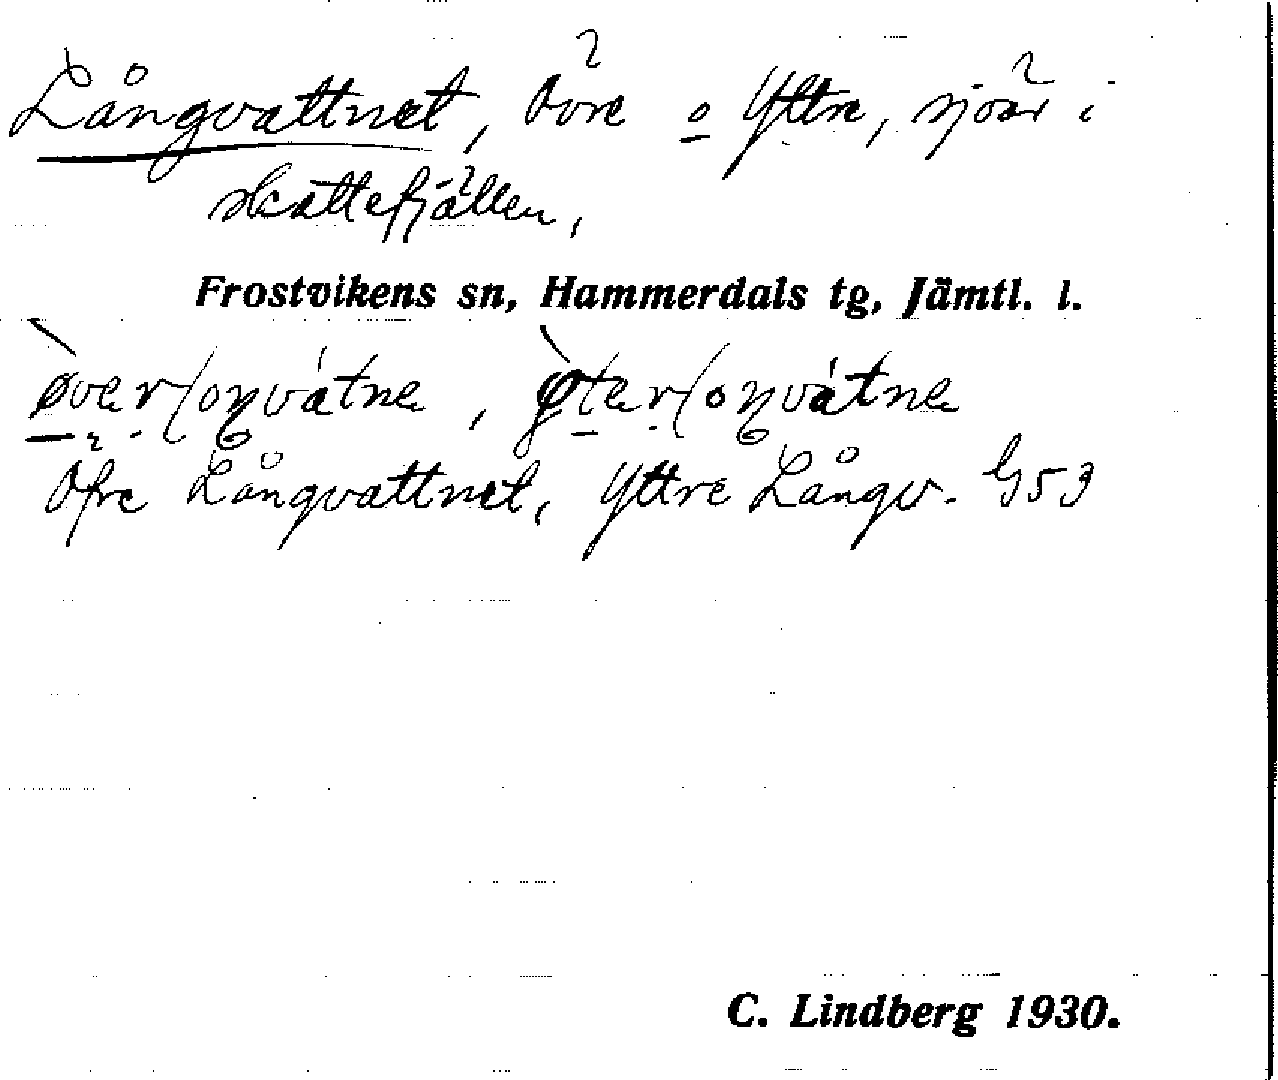 Långvattnet, Övre o Yttre, sjöar i
skattefjällen,
Frostvikens sn, Hammerdals tg, Jämtl. l.
Öfre Långvattnet, Yttre Långv. G53
C. Lindberg 1930.